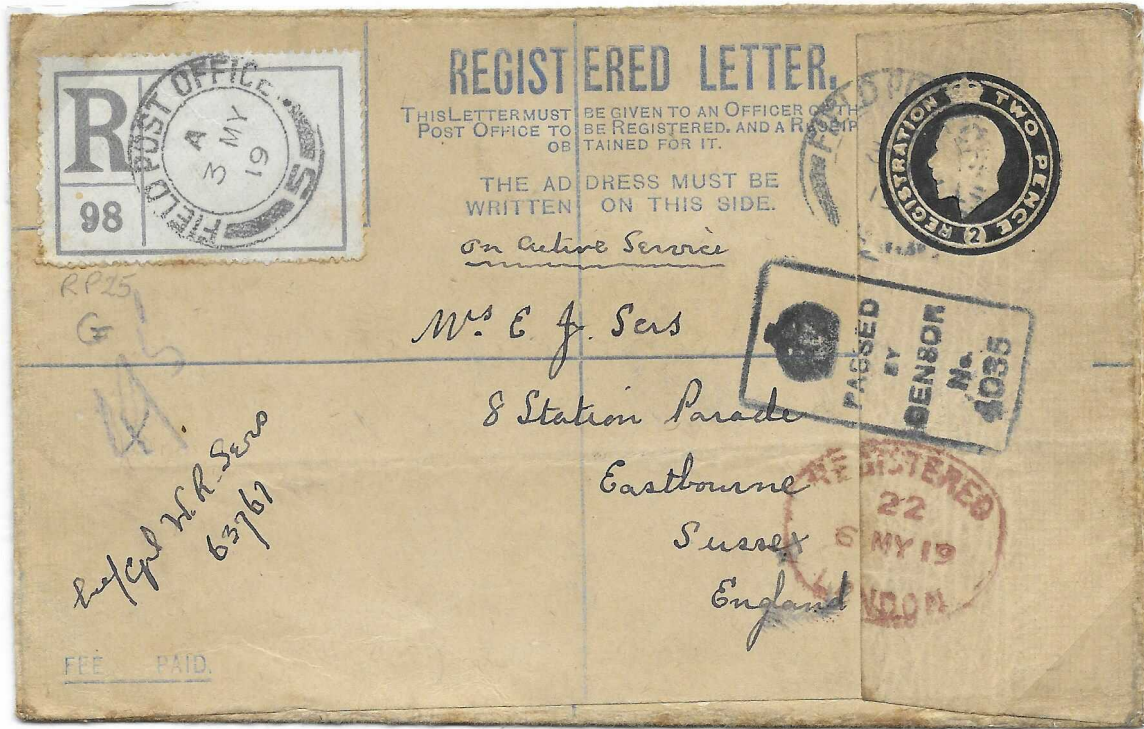 REGISTERED LETTER.
THIS LETTER MUST BE GIVEN TO AN OFFICER OF THE
POST OFFICE TO BE REGISTERED, AND A RECEIPT
OBTAINED FOR IT.
THE ADDRESS MUST BE
WRITTEN ON THIS SIDE.
R
98
FIELD POST OFFICE
A
3 MY
19
S
FIELD PO
REGISTRATION TWO PENCE
2
on active Service
RP25
G
Mrs E J. Sers
8 Station Parade
Eastbourne
Sussex
England
PASSED
BY
CENSOR
No.
4035
REGISTERED
22
6 MY 19
LONDON
Cpl W. R. Sers
63767
FEE PAID.